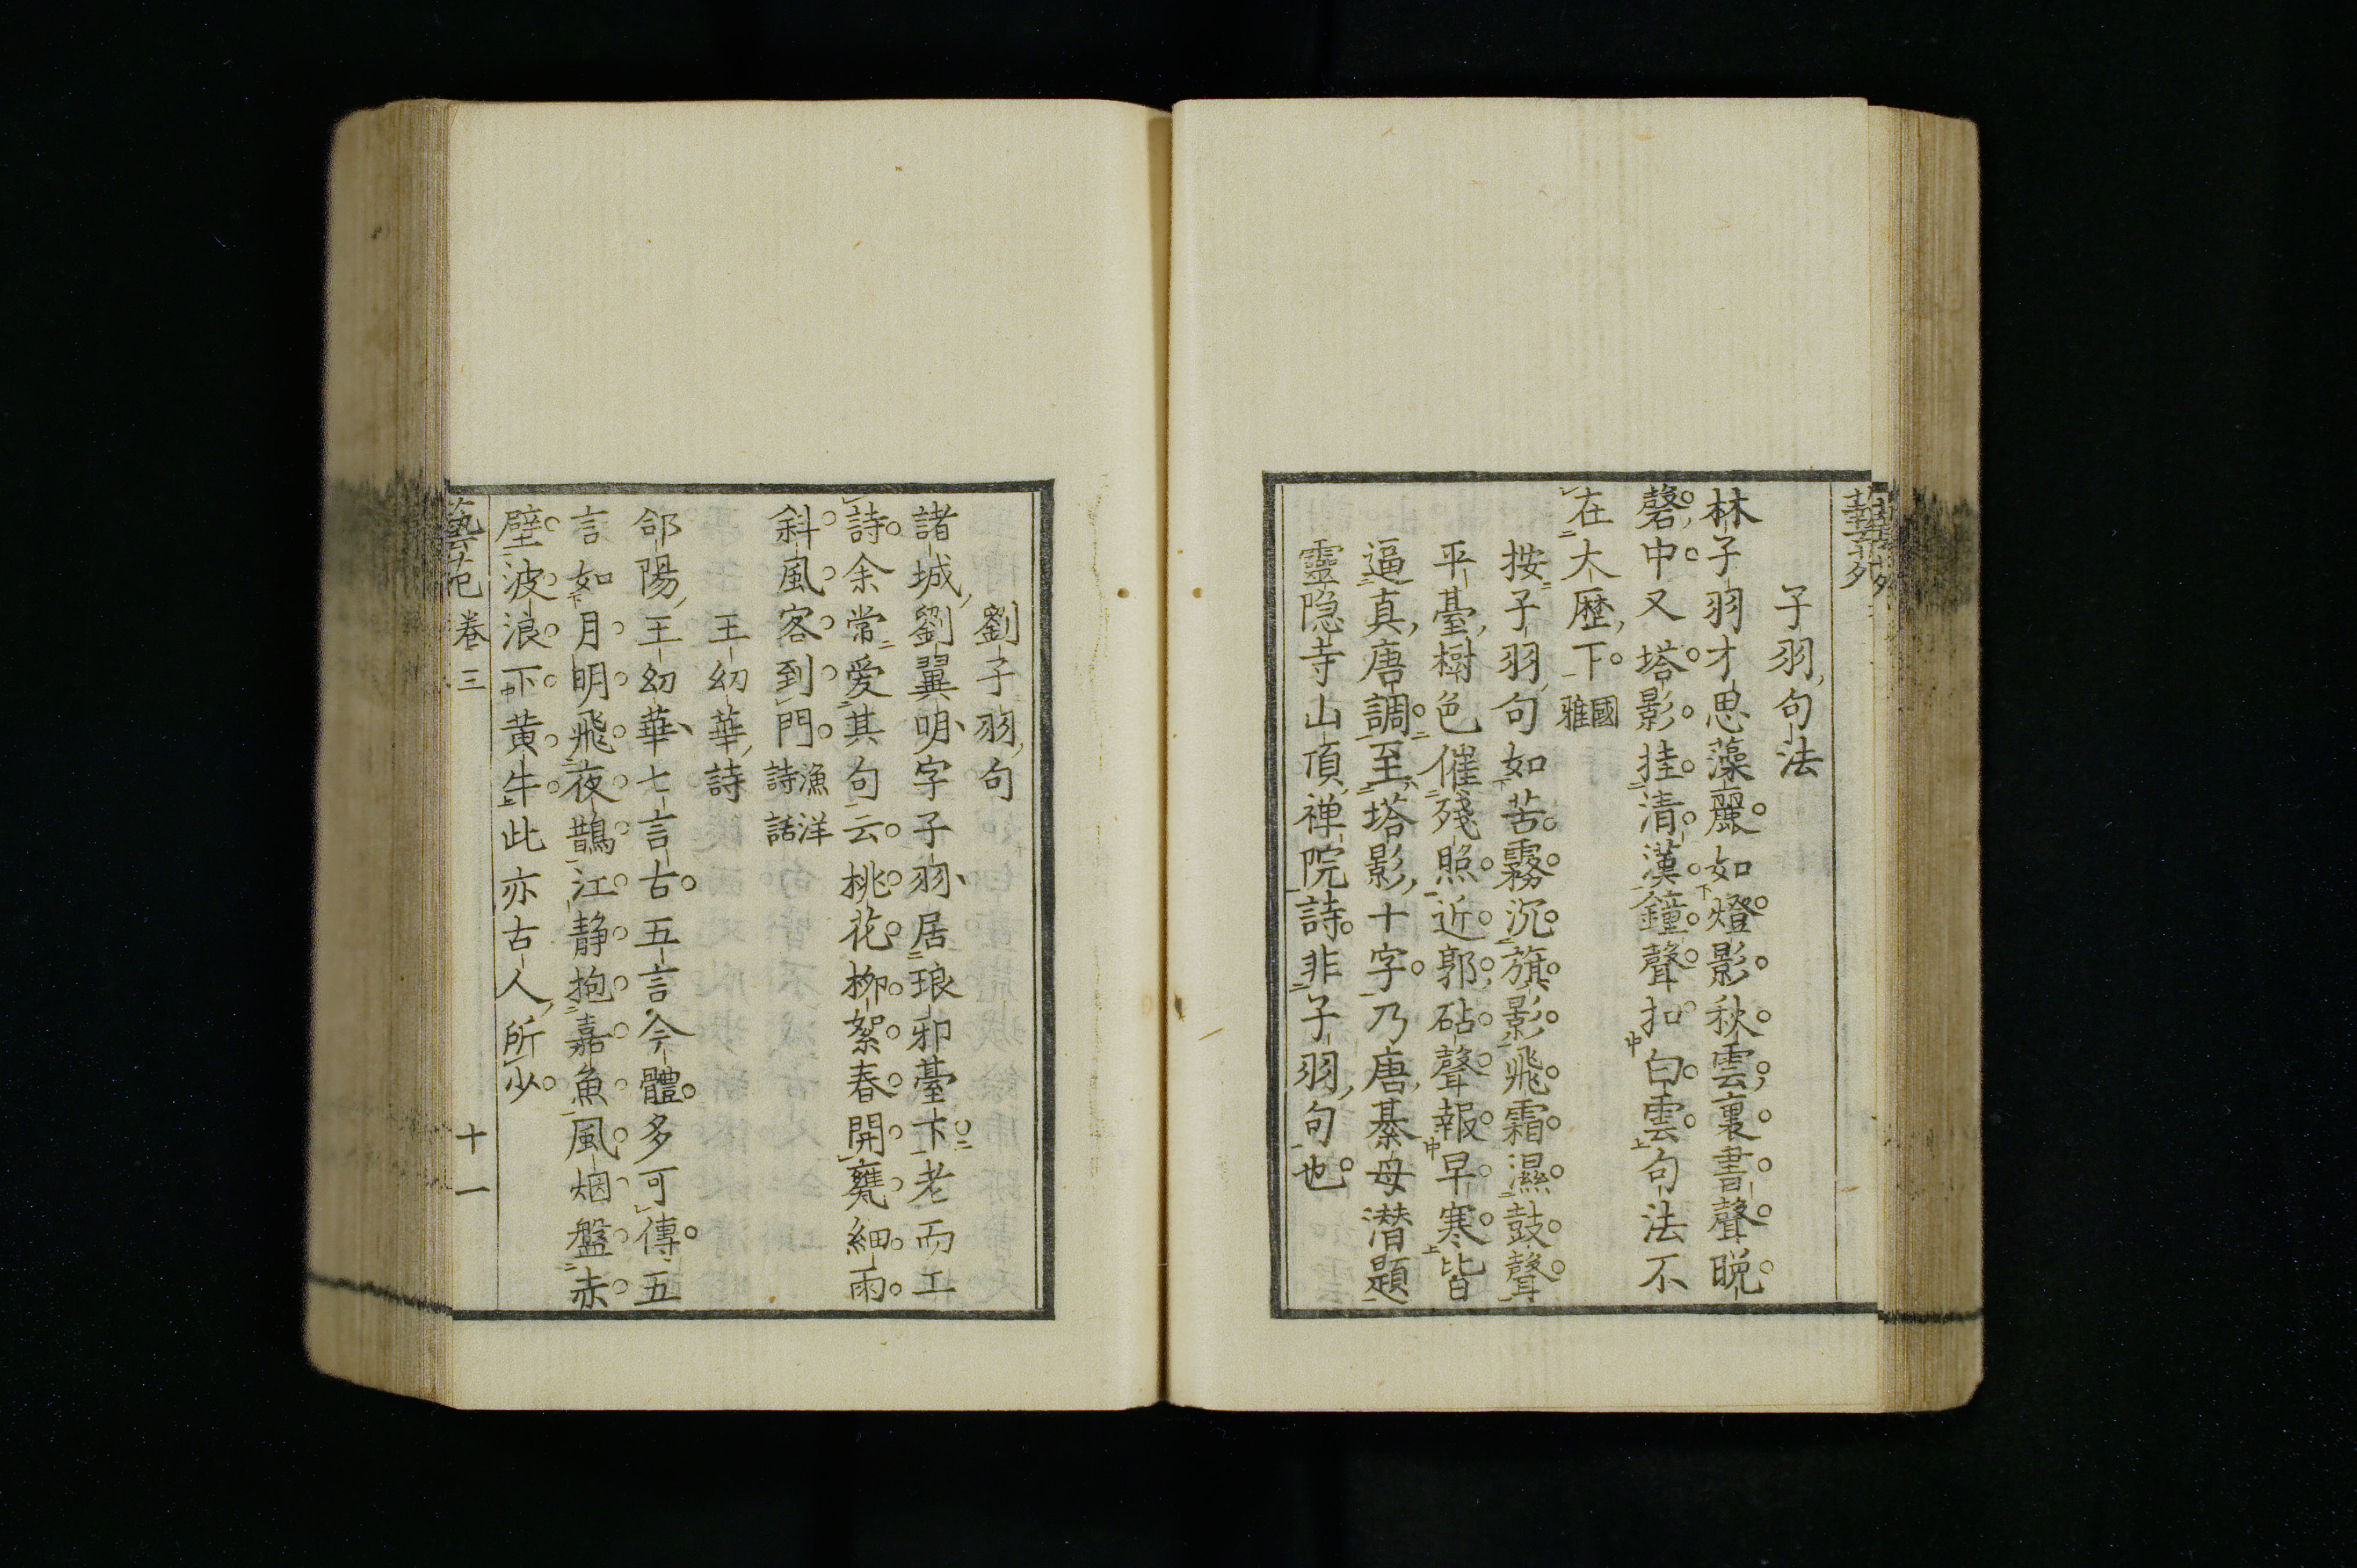 子羽句法
林子羽才思藻麗如燈影秋雲裏書聲晩
磬中又塔影挂清漢鐘聲扣白雲句法不
在大歴下國雅
按子羽句如苦霧沉旗影飛霜濕鼓聲
平臺樹色催殘照近郭砧聲報早寒皆
逼真唐調至塔影十字乃唐綦母潜題
靈隐寺山頂禅院詩非子羽句也
劉子羽句
諸城劉翼明字子羽居琅邪臺下老而工
詩余常愛其句云桃花柳絮春開甕細雨
斜風客到門漁洋詩話
王幼華詩
郃陽王幼華七言古五言今體多可傳五
言如月明飛夜鵲江静抱嘉魚風烟盤赤
壁波浪下黄牛此亦古人所少
藝苑 卷三 十一